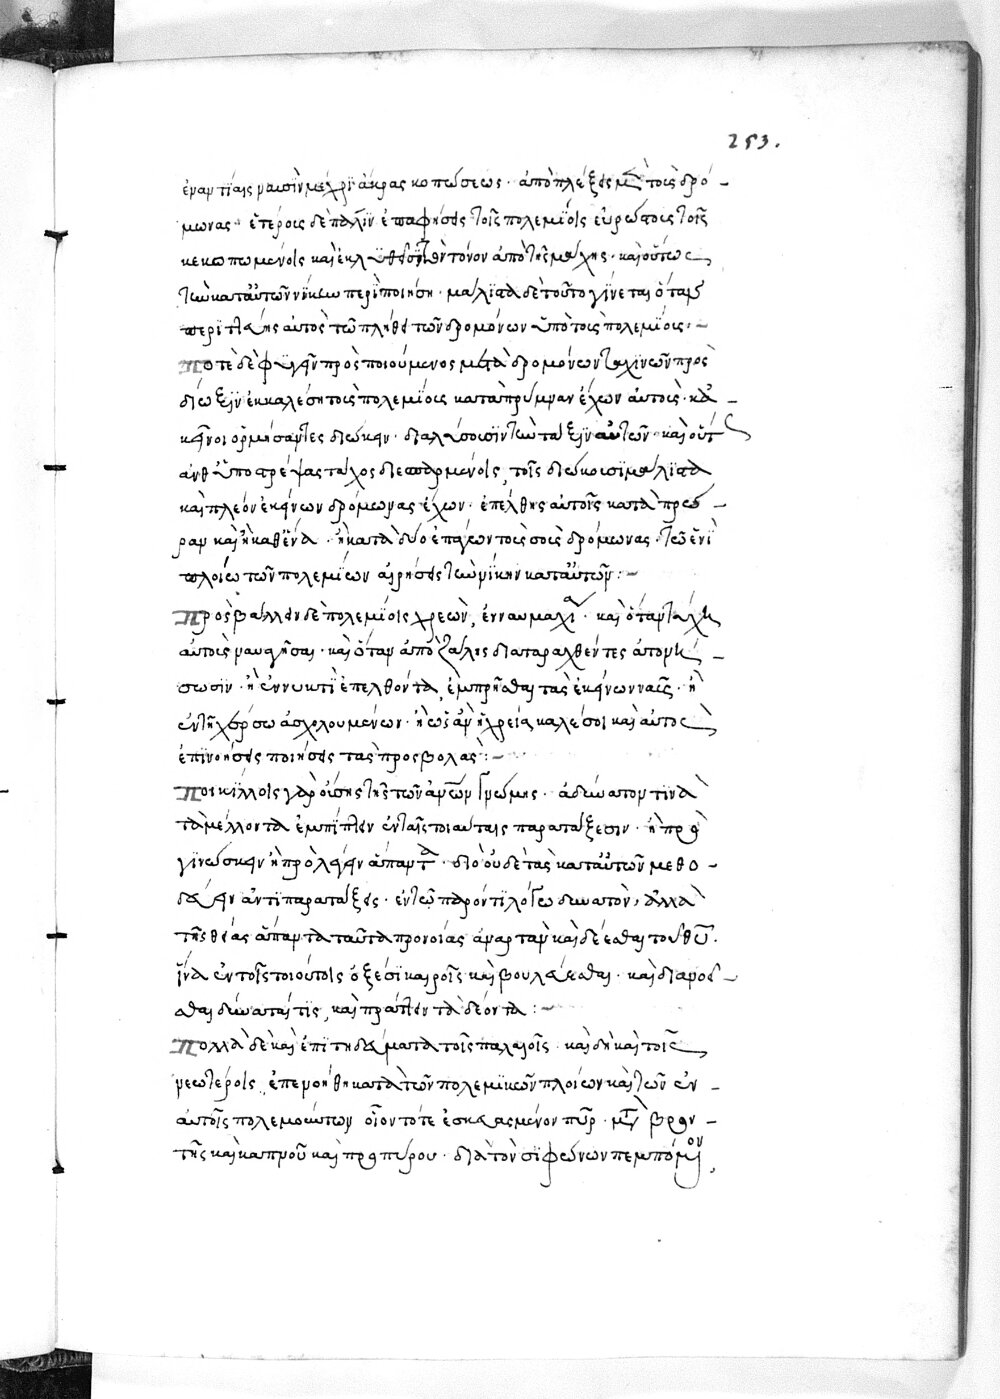 253.
ἐναντίαις ναυσὶν μέχρι ἄκρας κοπώσεως· ἀποπλέξεις μετὰ τοὺς δρό-
μωνας· ἑτέροις δὲ πάλιν ἐπαφήσεις τοῖς πολεμίοις εὐρώστοις τοῖς
κεκοπωμένοις καὶ ἐκλυθεῖσιν τὸν τόνον ἀπὸ τῆς μάχης· καὶ οὕτως
τὴν κατ' αὐτῶν νίκην περιποιήσῃ· μάλιστα δὲ τοῦτο γίνεται ὅταν
περιττεύῃς αὐτὸς τῷ πλήθει τῶν δρομόνων ὑπὸ τοὺς πολεμίους·
ποτὲ δὲ φυγὴν προσποιούμενος μετὰ δρομόνων ταχινῶν πρὸς
δίωξιν ἐκκαλέσῃ τοὺς πολεμίους κατὰ πρύμναν ἔχων αὐτούς· κἀ-
κεῖνοι ὁρμήσαντες διώκειν· διαλύσουσιν τὴν τάξιν αὐτῶν· καὶ οὕτ
ἀνθυποστρέψας τάχος διεσπαρμένοις τοῖς διώκουσι μάλιστα
καὶ πλέον ἐκείνων δρόμωνας ἔχων· ἐπέλθης αὐτοῖς κατὰ πρώ-
ραν καὶ ἢ καθένα· ἢ κατὰ δύο ἐπάγων τοὺς σοὺς δρόμωνας τῷ ἑνὶ
πλοίῳ τῶν πολεμίων αἱρήσεις τὴν νίκην κατ' αὐτῶν:-
Προσβάλλειν δὲ πολεμίοις χρεὼν, ἐν ναυμαχία· καὶ ὅταν τύχῃ
αὐτοὺς ναυαγῆσαι· καὶ ὅταν ἀπὸ ζάλης διαταραχθέντες ἀτονή-
σωσιν· ἢ ἐν νυκτὶ ἐπελθόντα ἐμπρῆσαι τὰς ἐκείνων ναῦς· ἢ
ἐν τῇ χέρσω ἀσχολουμένων· ἢ ὡς ἂν ἡ χρεία καλέσοι καὶ αὐτὸς
ἐπινοήσεις ποιήσεις τὰς προσβολάς:-
Ποικίλλοις γὰρ οὔσης τῆς τῶν ἀνθρώπων γνώμης· ἀδύνατον τινὰ
τὰ μέλλοντα ἐμπίπτειν ἐν ταῖς τοιαύταις παρατάξεσιν· ἢ προ
γινώσκειν ἢ προλέγειν ἅπαντα· διὸ οὐδὲ τὰς κατ' αὐτῶν μεθο-
δεύειν ἀντιπαρατάξεις· ἐν τῷ παρόντι λόγω δυνατόν, ἀλλὰ
τῆς θείας ἅπαντα ταῦτα προνοίας ἀναρτᾶν καὶ δέεσθαι τοῦ θεοῦ.
ἵνα ἐν τοῖς τοιούτοις ὀξέσι καιροῖς καὶ βουλεύεσθαι· καὶ διανοεῖ-
σθαι δύναται τὶς, καὶ πράττειν τὰ δέοντα:-
Πολλὰ δὲ καὶ ἐπιτηδεύματα τοῖς παλαιοῖς· καὶ δὴ καὶ τοῖς
νεωτέροις, ἐπενοήθη κατὰ τῶν πολεμικῶν πλοίων καὶ τῶν ἐν-
αὐτοῖς πολεμούντων οἷον τότε ἐσκευασμένον πῦρ· μετὰ βρον-
τῆς καὶ καπνοῦ καὶ προπύρου· διὰ τὸν σιφώνων πεμπόμενον